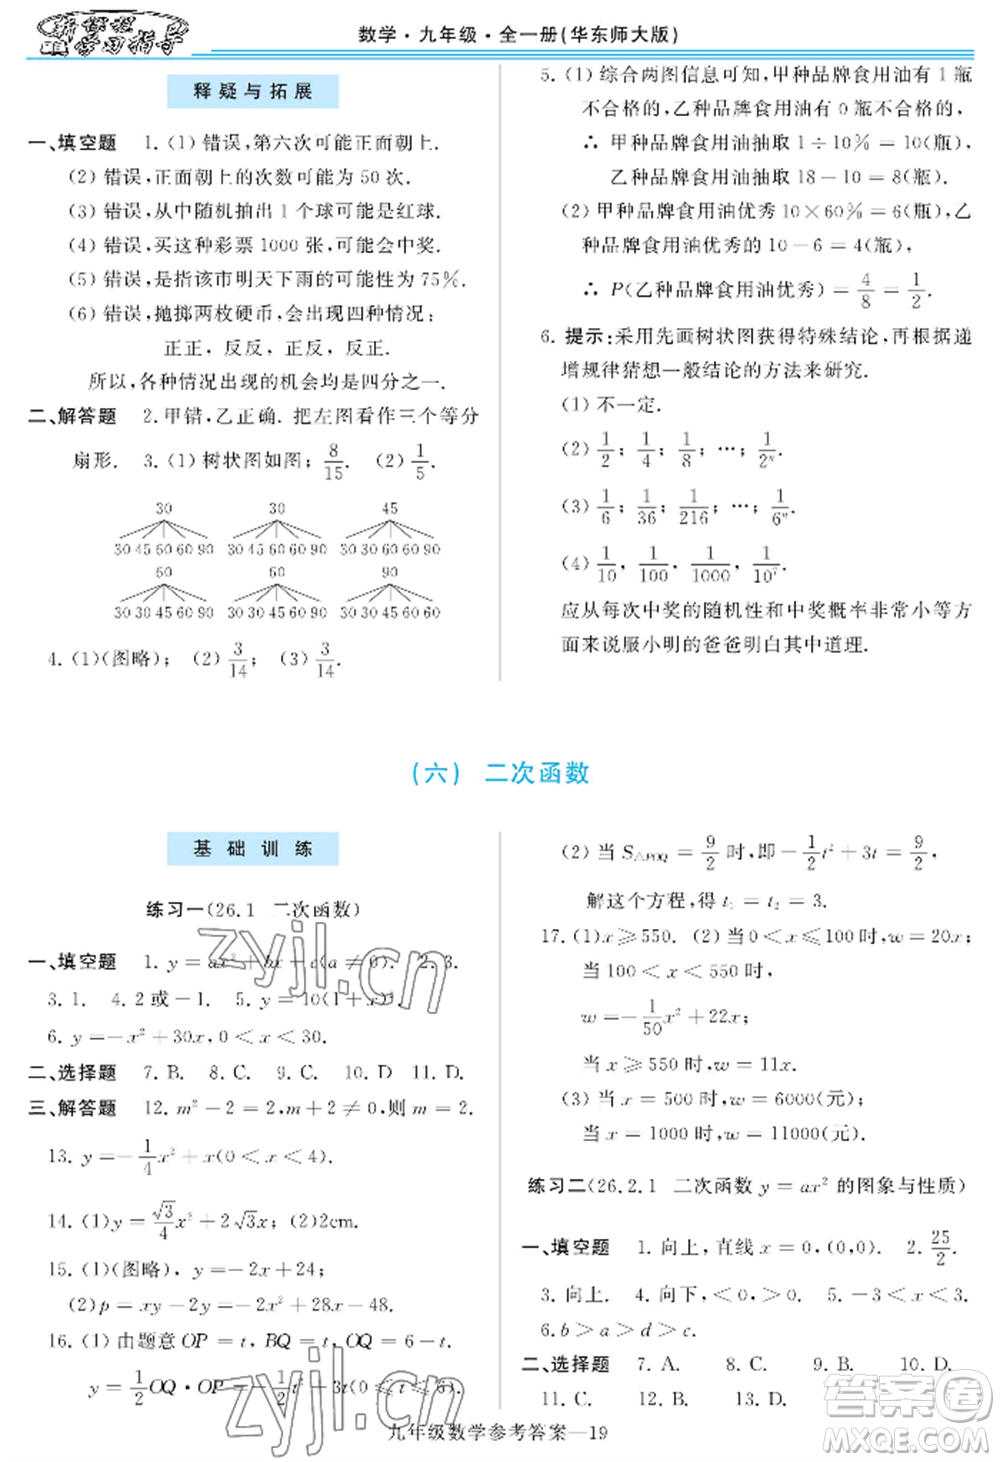 新课程
学习指导
数学·九年级·全一册(华东师大版)
释疑与拓展
一、填空题 1.(1)错误,第六次可能正面朝上.
(2)错误,正面朝上的次数可能为50次.
(3)错误,从中随机抽出1个球可能是红球.
(4)错误,买这种彩票1000张,可能会中奖.
(5)错误,是指该市明天下雨的可能性为75%.
(6)错误,抛掷两枚硬币,会出现四种情况:
正正,反反,正反,反正.
所以,各种情况出现的机会均是四分之一.
二、解答题 2.甲错,乙正确.把左图看作三个等分
扇形. 3.(1)树状图如图; 8/15. (2) 1/5.
30 30 45
30 45 60 60 90 30 45 60 60 90 30 30 60 60 90
60 60 90
30 30 45 60 90 30 30 45 60 90 30 30 45 60 60
4.(1)(图略); (2) 3/14; (3) 3/14.
5.(1)综合两图信息可知,甲种品牌食用油有1瓶
不合格的,乙种品牌食用油有0瓶不合格的,
∴ 甲种品牌食用油抽取1÷10%=10(瓶),
乙种品牌食用油抽取18-10=8(瓶).
(2)甲种品牌食用油优秀10×60%=6(瓶),乙
种品牌食用油优秀的10-6=4(瓶),
∴ P(乙种品牌食用油优秀)=4/8=1/2.
6.提示:采用先画树状图获得特殊结论,再根据递
增规律猜想一般结论的方法来研究.
(1)不一定.
(2) 1/2; 1/4; 1/8; …; 1/2ⁿ.
(3) 1/6; 1/36; 1/216; …; 1/6ⁿ.
(4) 1/10, 1/100, 1/1000, 1/10⁷.
应从每次中奖的随机性和中奖概率非常小等方
面来说服小明的爸爸明白其中道理.
(六) 二次函数
基础训练
练习一(26.1 二次函数)
一、填空题 1.y=ax²+bx+c(a≠0). 2.3.
3.1. 4.2或-1. 5.y=10(1+x)².
6.y=-x²+30x,0<x<30.
二、选择题 7.B. 8.C. 9.C. 10.D. 11.C.
三、解答题 12.m²-2=2,m+2≠0,则m=2.
13.y=-1/4x²+x(0<x<4).
14.(1)y=√3/4x²+2√3x;(2)2cm.
15.(1)(图略),y=-2x+24;
(2)p=xy-2y=-2x²+28x-48.
16.(1)由题意OP=t,BQ=t,OQ=6-t,
y=1/2OQ·OP=-1/2t²+3t(0≤t≤6).
(2)当S△POQ=9/2时,即-1/2t²+3t=9/2,
解这个方程,得t₁=t₂=3.
17.(1)x≥550. (2)当0<x≤100时,w=20x;
当100<x<550时,
w=-1/50x²+22x;
当x≥550时,w=11x.
(3)当x=500时,w=6000(元);
当x=1000时,w=11000(元).
练习二(26.2.1 二次函数y=ax²的图象与性质)
一、填空题 1.向上,直线x=0,(0,0). 2.25/2.
3.向上. 4.向下,<,>. 5.-3<x<3.
6.b>a>d>c.
二、选择题 7.A. 8.D. 9.B. 10.D.
11.C. 12.B. 13.D.
九年级数学参考答案—19
zyjl.cn
zyjl.cn
答案圈
MXQE.COM